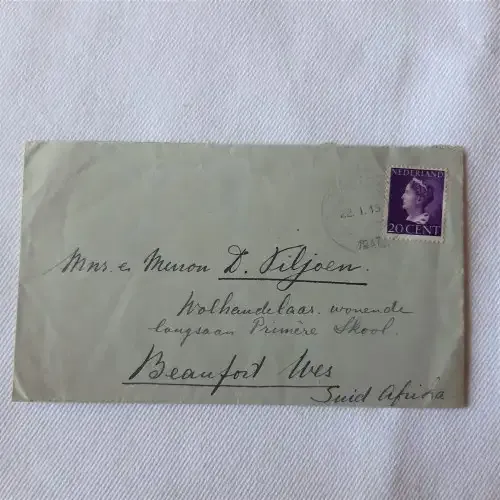 NEDERLAND
20 CENT
Mnr. en Mevrou D. Viljoen.
Wolhandelaar. wonende
langsaan Primêre Skool.
Beaufort Wes
Suid Afrika